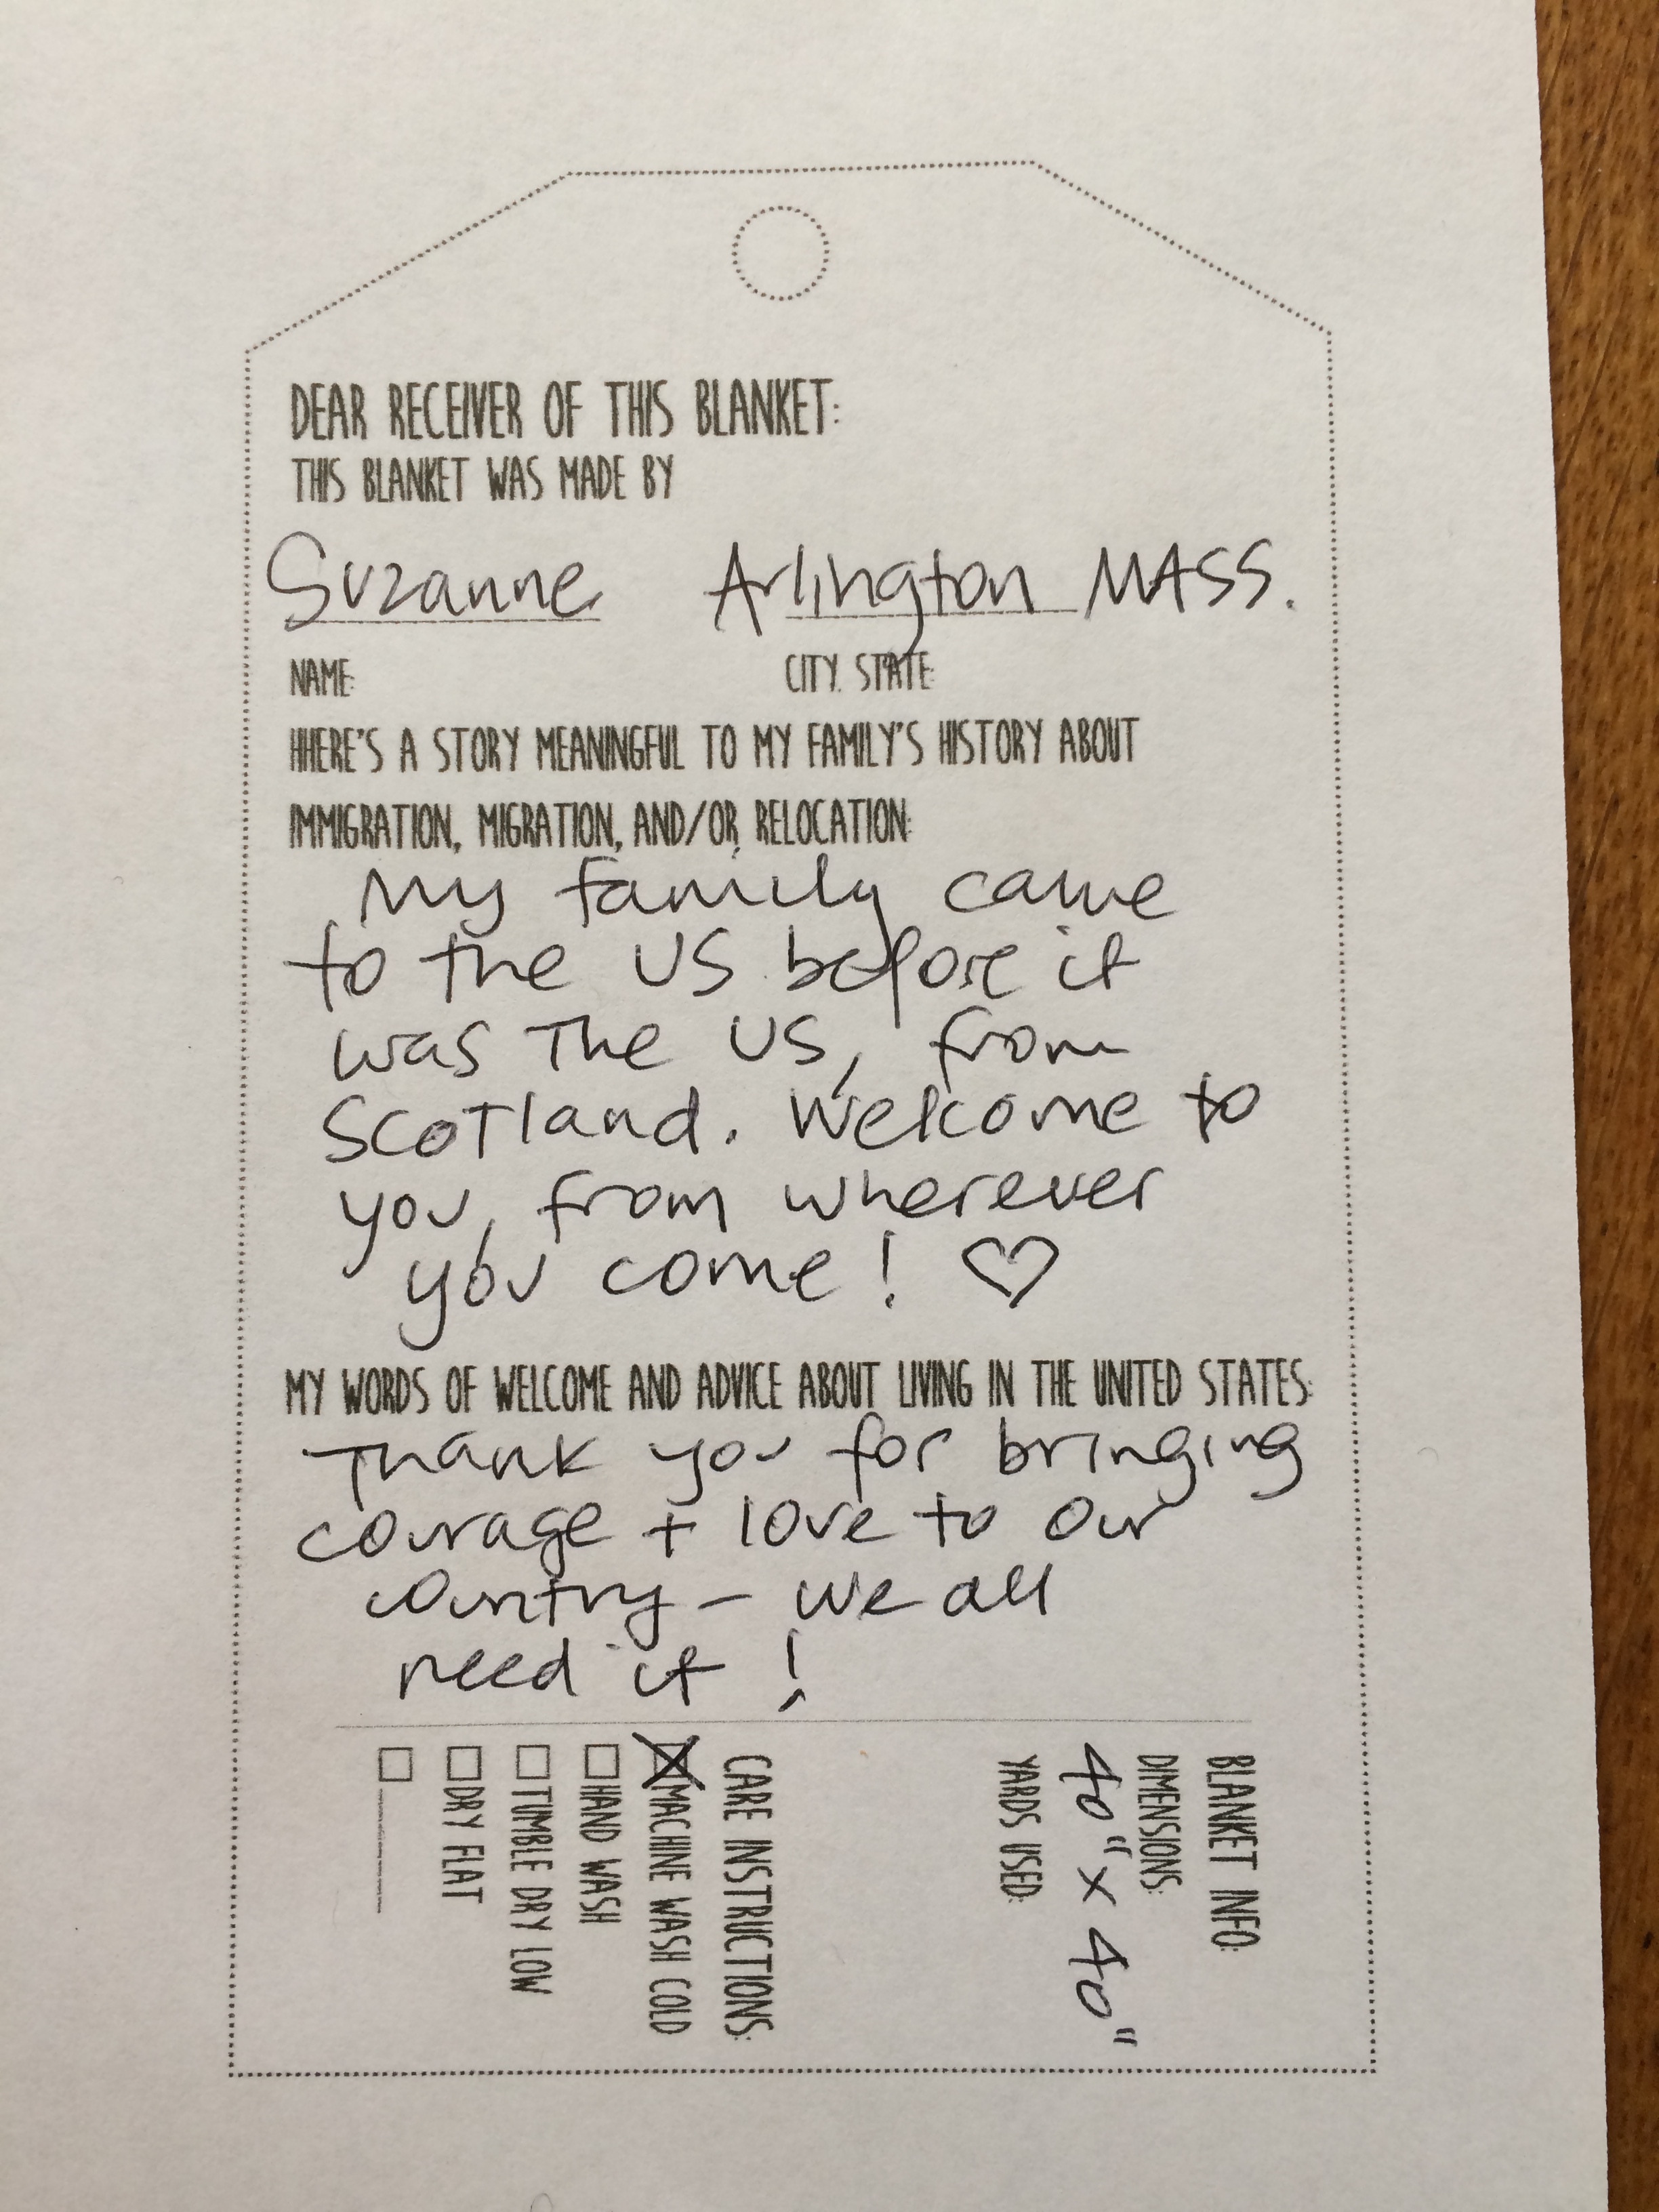 DEAR RECEIVER OF THIS BLANKET:
THIS BLANKET WAS MADE BY
Suzanne Arlington MASS.
NAME: CITY, STATE:
HHERE'S A STORY MEANINGFUL TO MY FAMILY'S HISTORY ABOUT
IMMIGRATION, MIGRATION, AND/OR RELOCATION:
My family came
to the US before it
was The US, from
Scotland. Welcome to
you, from wherever
you come! ♡
MY WORDS OF WELCOME AND ADVICE ABOUT LIVING IN THE UNITED STATES:
Thank you for bringing
courage + love to our
country – we all
need it!
BLANKET INFO:
DIMENSIONS:
40" x 40"
YARDS USED:
CARE INSTRUCTIONS:
☒ MACHINE WASH COLD
☐ HAND WASH
☐ TUMBLE DRY LOW
☐ DRY FLAT
☐